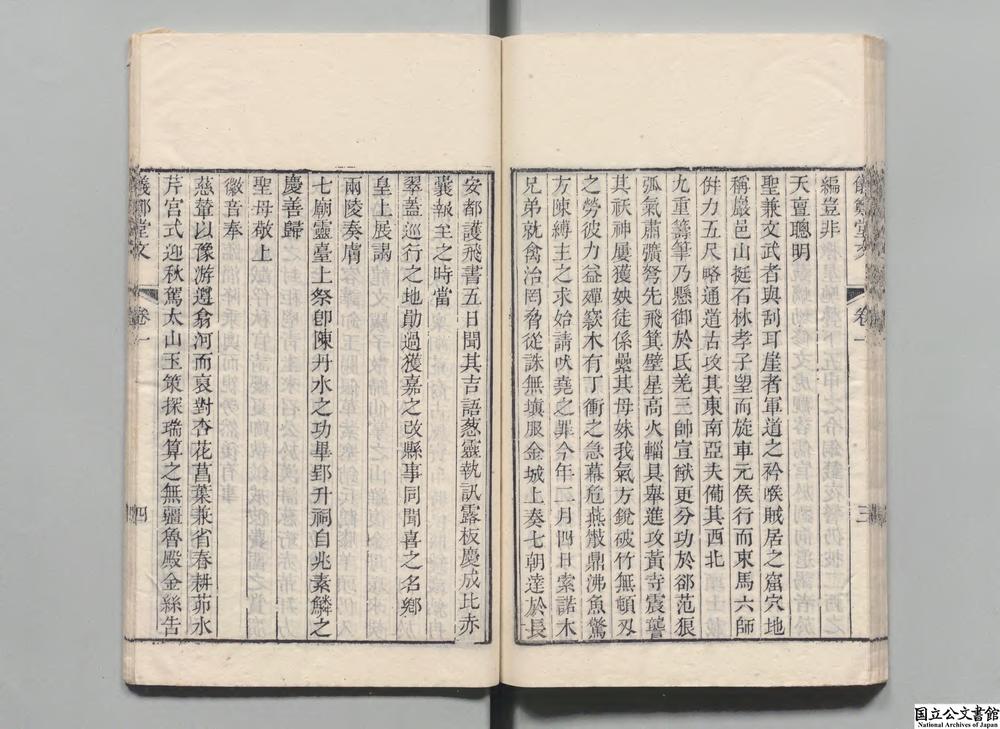 儀鄭堂文 卷一 三
編豈非
天亶聰明
聖兼文武者與刮耳崖者軍道之衿喉賊居之窟穴地
稱巖邑山挺石林孝子望而旋車元侯行而束馬六師
倂力五尺略通道古攻其東南亞夫備其西北
九重籌筆乃懸御於氐羌三帥宣猷更分功於郤范狼
弧氣肅彍弩先飛箕壁星高火輜具舉進攻黃寺震讋
其祆神屢獲妖徒係纍其母妹我氣方銳破竹無頓刃
之勞彼力益殫窾木有丁衝之急幕危燕散鼎沸魚驚
方陳縛主之求始請吠堯之罪今年二月四日索諾木
兄弟就禽治罔脅從誅無填服金城上奏七朝達於長
安都護飛書五日聞其吉語葱靈執訊露板慶成比赤
囊報至之時當
翠蓋巡行之地勛過獲嘉之改縣事同聞喜之名鄉
皇上展謁
兩陵奏膚
七廟靈臺上祭卽陳丹水之功畢郢升祠自兆素鱗之
慶善歸
聖母敬上
徽音奉
慈輦以豫游遵翕河而裒對杏花菖葉兼省春耕茆水
芹宮式迎秋駕太山玉策探瑞算之無疆魯殿金絲告
儀鄭堂文 卷一 四
国立公文書館
National Archives of Japan